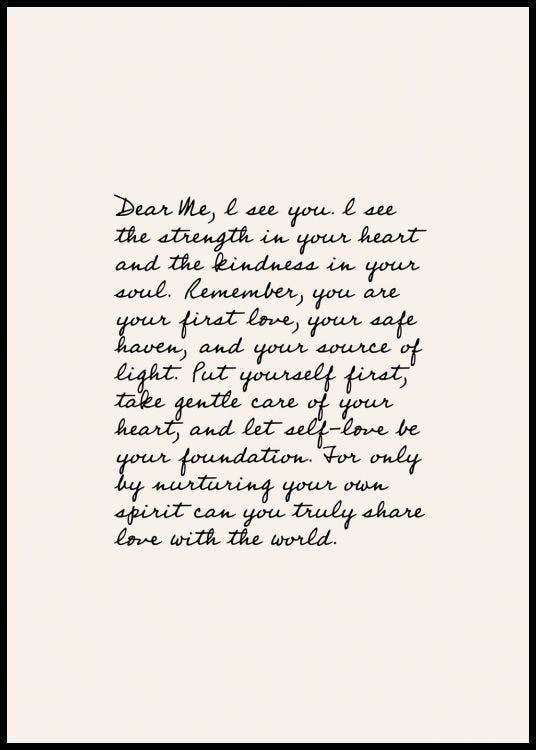 Dear Me, I see you. I see
the strength in your heart
and the kindness in your
soul. Remember, you are
your first love, your safe
haven, and your source of
light. Put yourself first,
take gentle care of your
heart, and let self-love be
your foundation. For only
by nurturing your own
spirit can you truly share
love with the world.